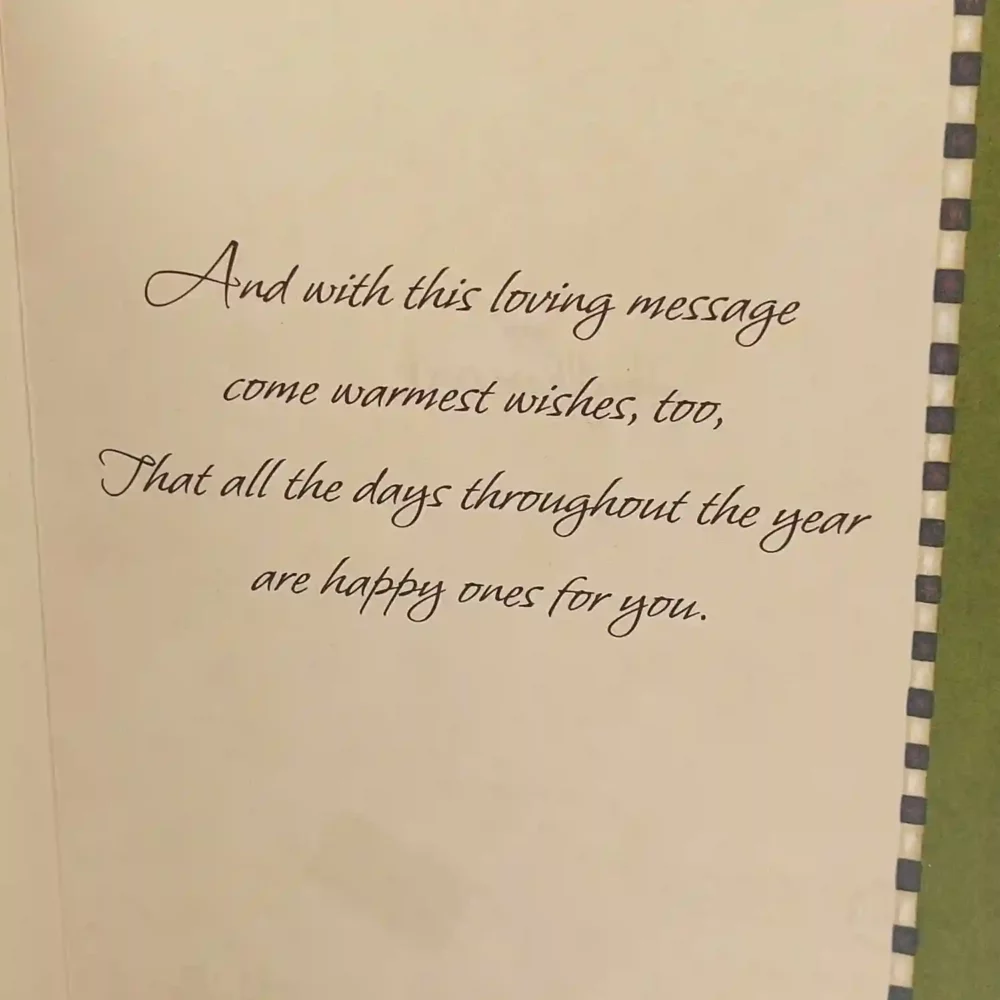 And with this loving message
come warmest wishes, too,
That all the days throughout the year
are happy ones for you.